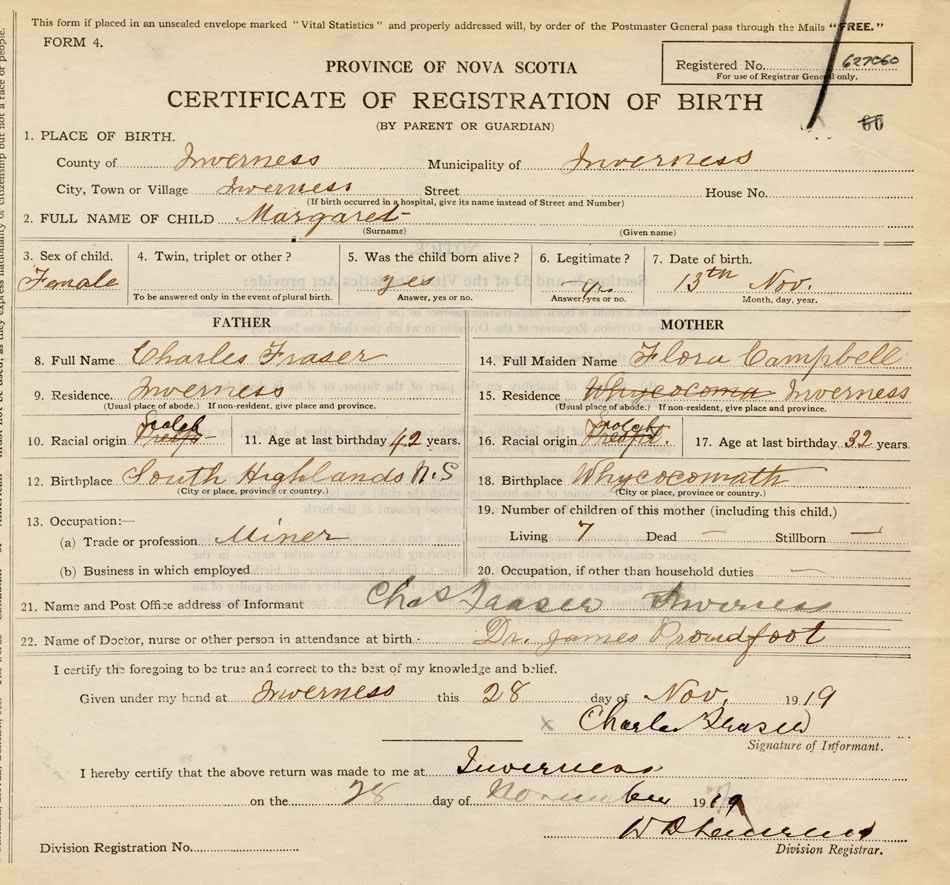 This form if placed in an unsealed envelope marked "Vital Statistics" and properly addressed will, by order of the Postmaster General pass through the Mails "FREE."
FORM 4.
Registered No. 627060
For use of Registrar General only.
PROVINCE OF NOVA SCOTIA
CERTIFICATE OF REGISTRATION OF BIRTH
(BY PARENT OR GUARDIAN)
60
1. PLACE OF BIRTH.
County of Inverness Municipality of Inverness
City, Town or Village Inverness Street House No.
(If birth occurred in a hospital, give its name instead of Street and Number)
2. FULL NAME OF CHILD Margaret
(Surname) (Given name)
3. Sex of child. 4. Twin, triplet or other? 5. Was the child born alive? 6. Legitimate? 7. Date of birth.
Female yes yes 13th Nov.
To be answered only in the event of plural birth. Answer, yes or no. Answer, yes or no. Month, day, year.
FATHER MOTHER
8. Full Name Charles Fraser 14. Full Maiden Name Flora Campbell
9. Residence. Inverness 15. Residence Whycocoma Inverness
(Usual place of abode.) If non-resident, give place and province. (Usual place of abode.) If non-resident, give place and province.
10. Racial origin Scotch 11. Age at last birthday 42 years. 16. Racial origin Scotch 17. Age at last birthday 32 years.
12. Birthplace South Highlands N.S 18. Birthplace Whycocomath
(City or place, province or country.) (City or place, province or country.)
13. Occupation:— 19. Number of children of this mother (including this child.)
(a) Trade or profession Miner Living 7 Dead — Stillborn —
(b) Business in which employed 20. Occupation, if other than household duties —
21. Name and Post Office address of Informant Chas Fraser Inverness
22. Name of Doctor, nurse or other person in attendance at birth Dr. James Proudfoot
I certify the foregoing to be true and correct to the best of my knowledge and belief.
Given under my hand at Inverness this 28 day of Nov. 1919
x Charles Fraser
Signature of Informant.
I hereby certify that the above return was made to me at Inverness
on the 28 day of November 1919
Division Registration No. Division Registrar.